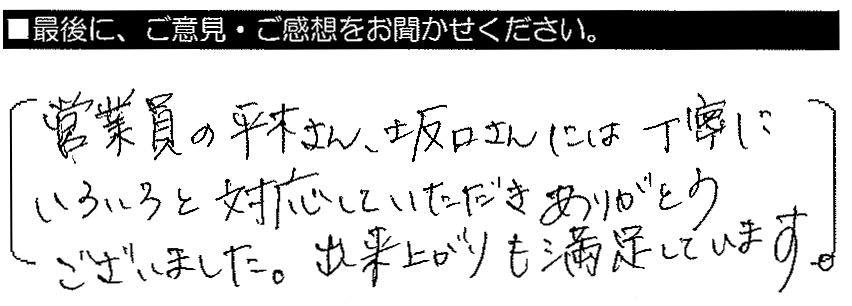 ■最後に、ご意見・ご感想をお聞かせください。
営業員の平木さん、坂口さんには丁寧に
いろいろと対応していただきありがとう
ございました。出来上がりも満足しています。